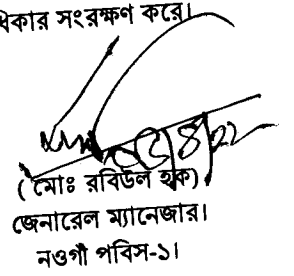 ধিকার সংরক্ষণ করে।
(মোঃ রবিউল হক)
জেনারেল ম্যানেজার।
নওগাঁ পবিস-১।